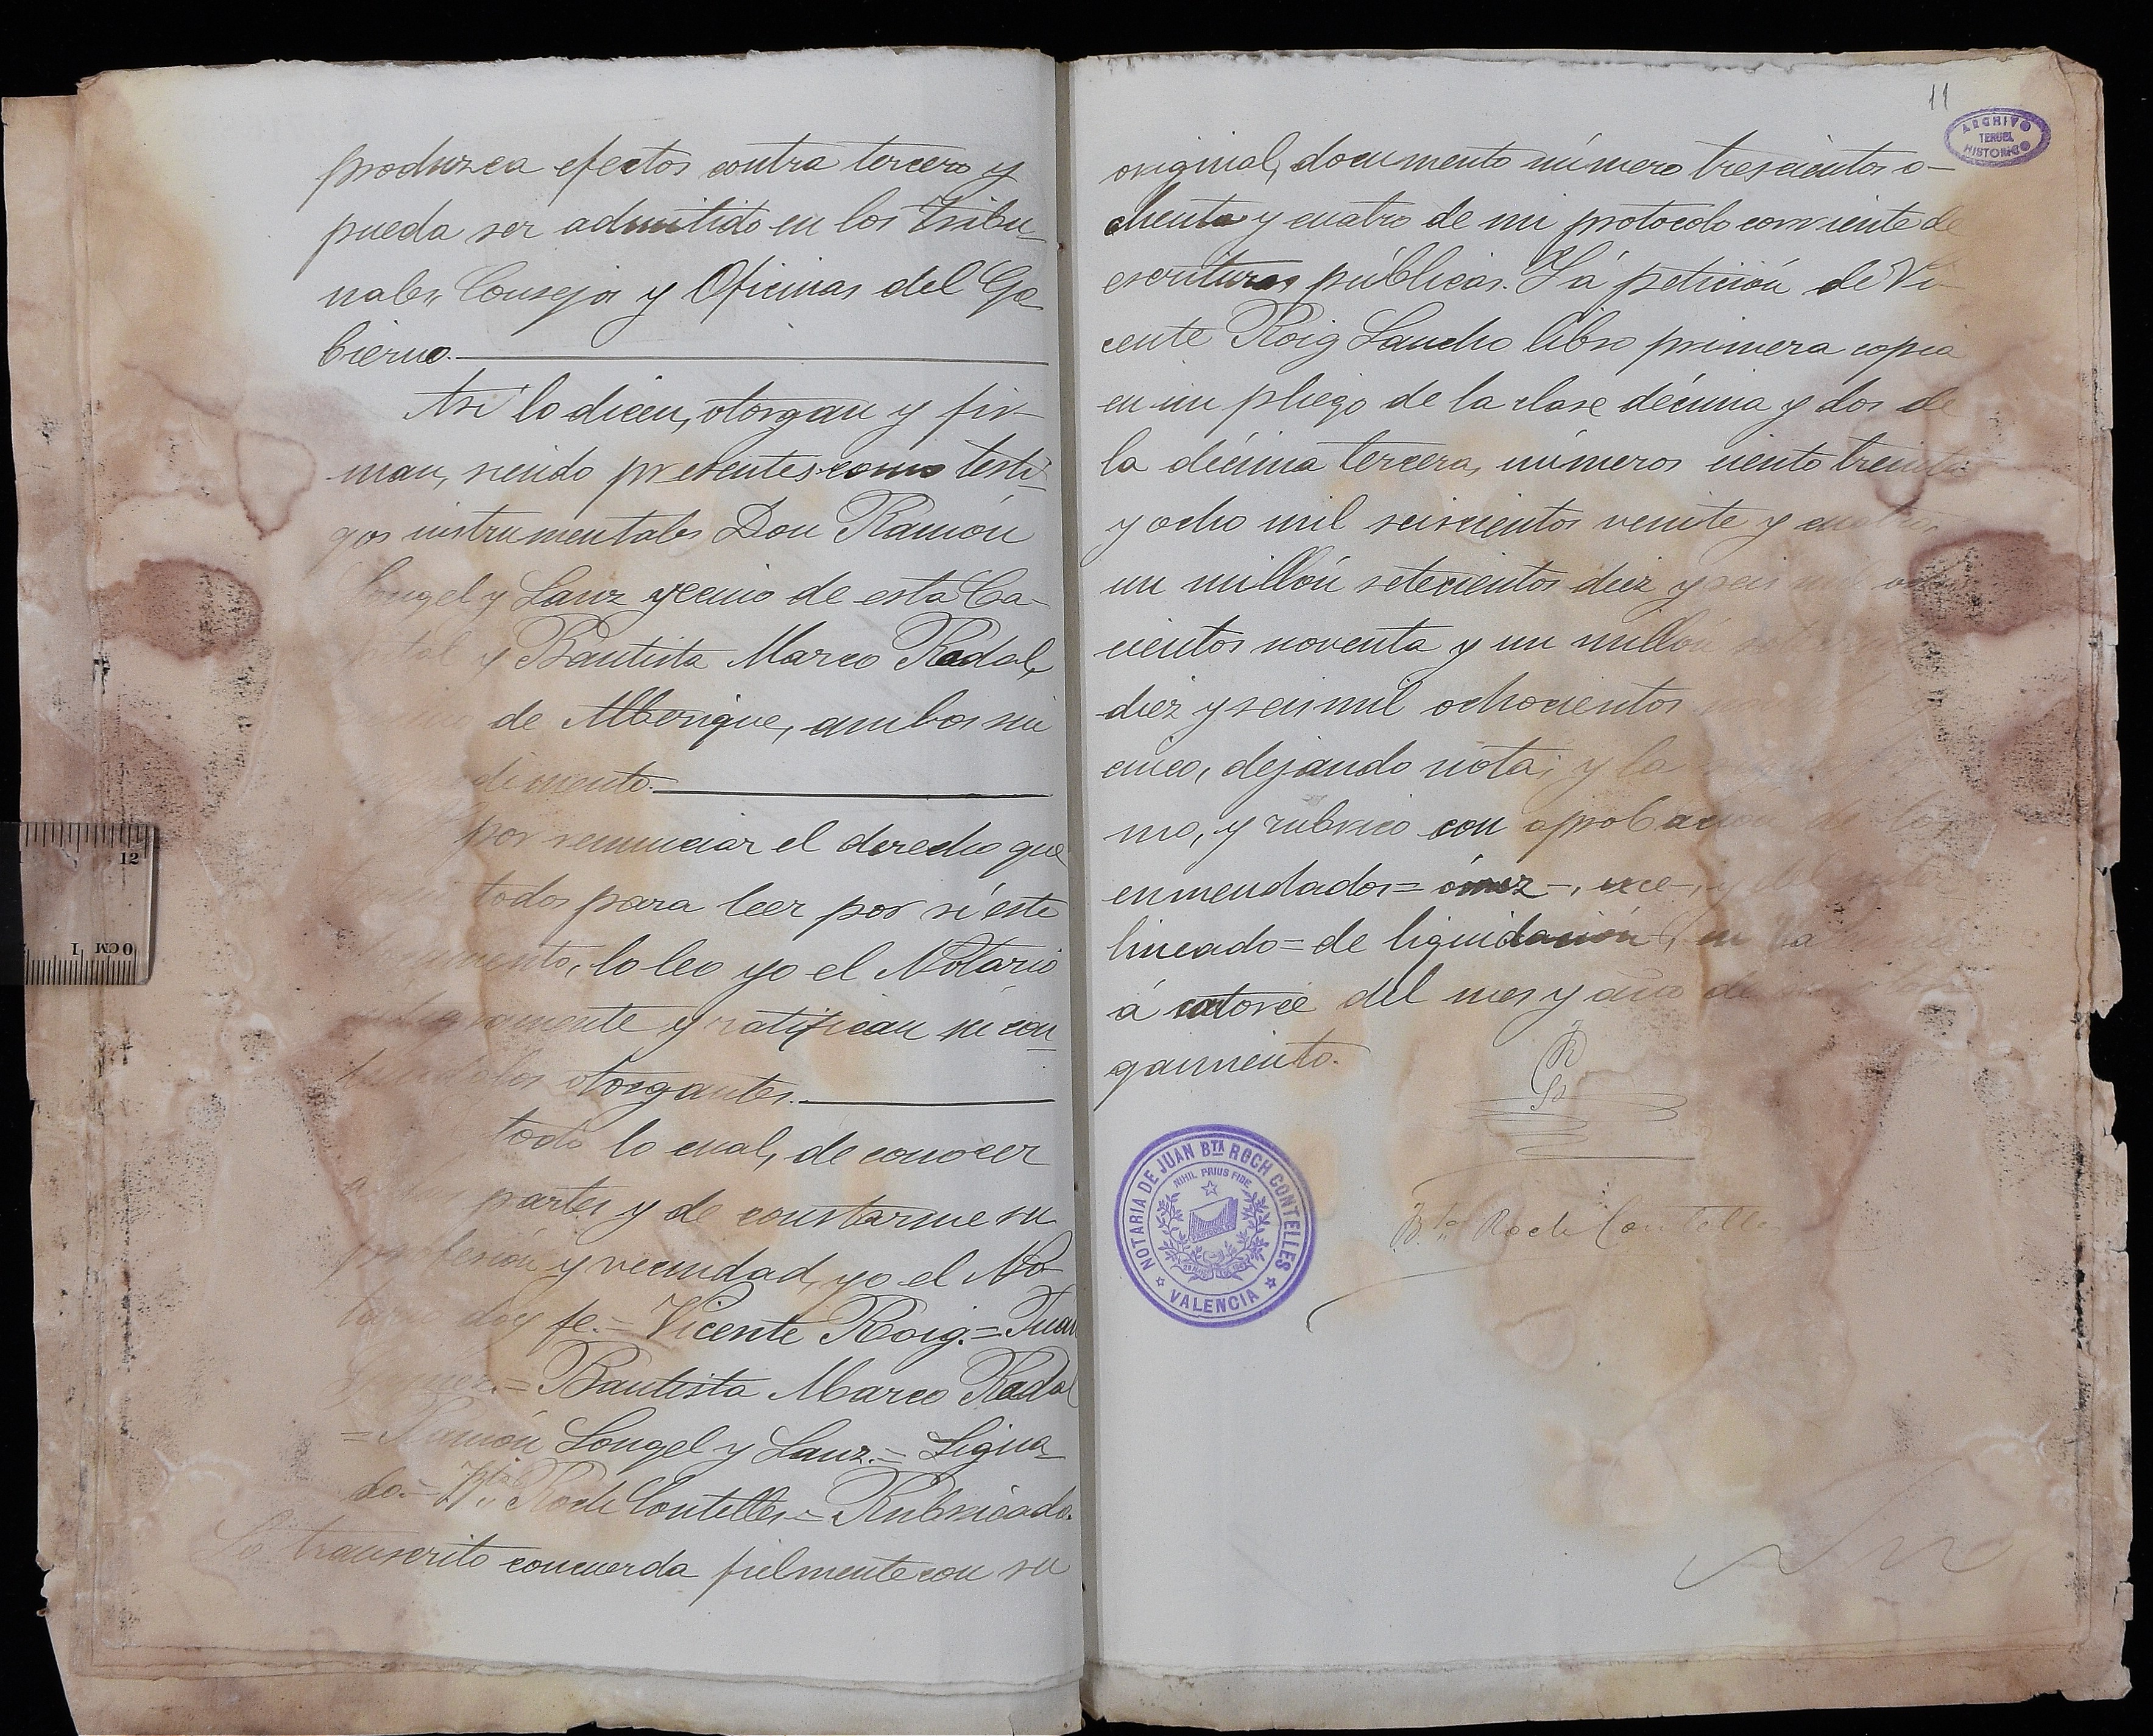 produzca efectos contra tercero y
pueda ser admitido en los Tribu-
nales, Consejos y Oficinas del Go-
bierno.
Así lo dicen, otorgan y fir-
man, siendo presentes como testi-
gos instrumentales Don Ramón
Longel y Sanz vecino de esta Ca-
pital y Bautista Marco Radal,
de Alberique, ambos sin
impedimento.
por renunciar el derecho que
tienen todos para leer por sí este
documento, lo leo yo el Notario
íntegramente y ratifican su con-
otorgantes.
todo lo cual, de conocer
a las partes y de constarme su
profesión y vecindad, yo el No-
tario doy fe.= Vicente Roig.= Juan
= Bautista Marco Radal
= Ramón Longel y Sanz.= Signa-
do.= Bta. Roch Contelles.= Rubricado.
Lo transcrito concuerda fielmente con su
11
ARCHIVO
TERUEL
HISTORICO
original, documento número trescientos o-
chenta y cuatro de mi protocolo corriente de
escrituras públicas. Y á petición de Vi-
cente Roig Sancho libro primera copia
en un pliego de la clase décima y dos de
la décima tercera, números ciento treinta
y ocho mil seiscientos veinte y cuatro,
un millón setecientos diez y seis mil ocho
cientos noventa y un millón setecientos
diez y seis mil ochocientos
cinco, dejando nota; y la
mo, y rubrico con aprobación de los
enmendados= ómez-, ece-, y del
lineado= de liquidación, en Valencia
á catorce del mes y año de su otor-
gamiento.
Bta. Roch Contelles
NOTARIA DE JUAN BTA ROCH CONTELLES
NIHIL PRIUS FIDE
VALENCIA
12
0CM 1